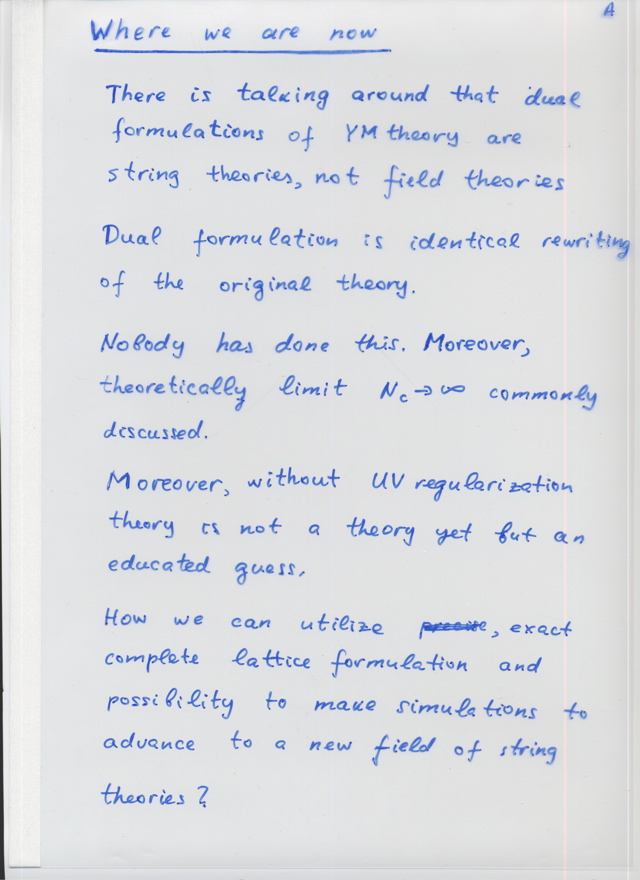 A
Where we are now
There is talking around that dual
formulations of YM theory are
string theories, not field theories
Dual formulation is identical rewriting
of the original theory.
Nobody has done this. Moreover,
theoretically limit Nc → ∞ commonly
discussed.
Moreover, without UV regularization
theory is not a theory yet but an
educated guess.
How we can utilize precise, exact
complete lattice formulation and
possibility to make simulations to
advance to a new field of string
theories?